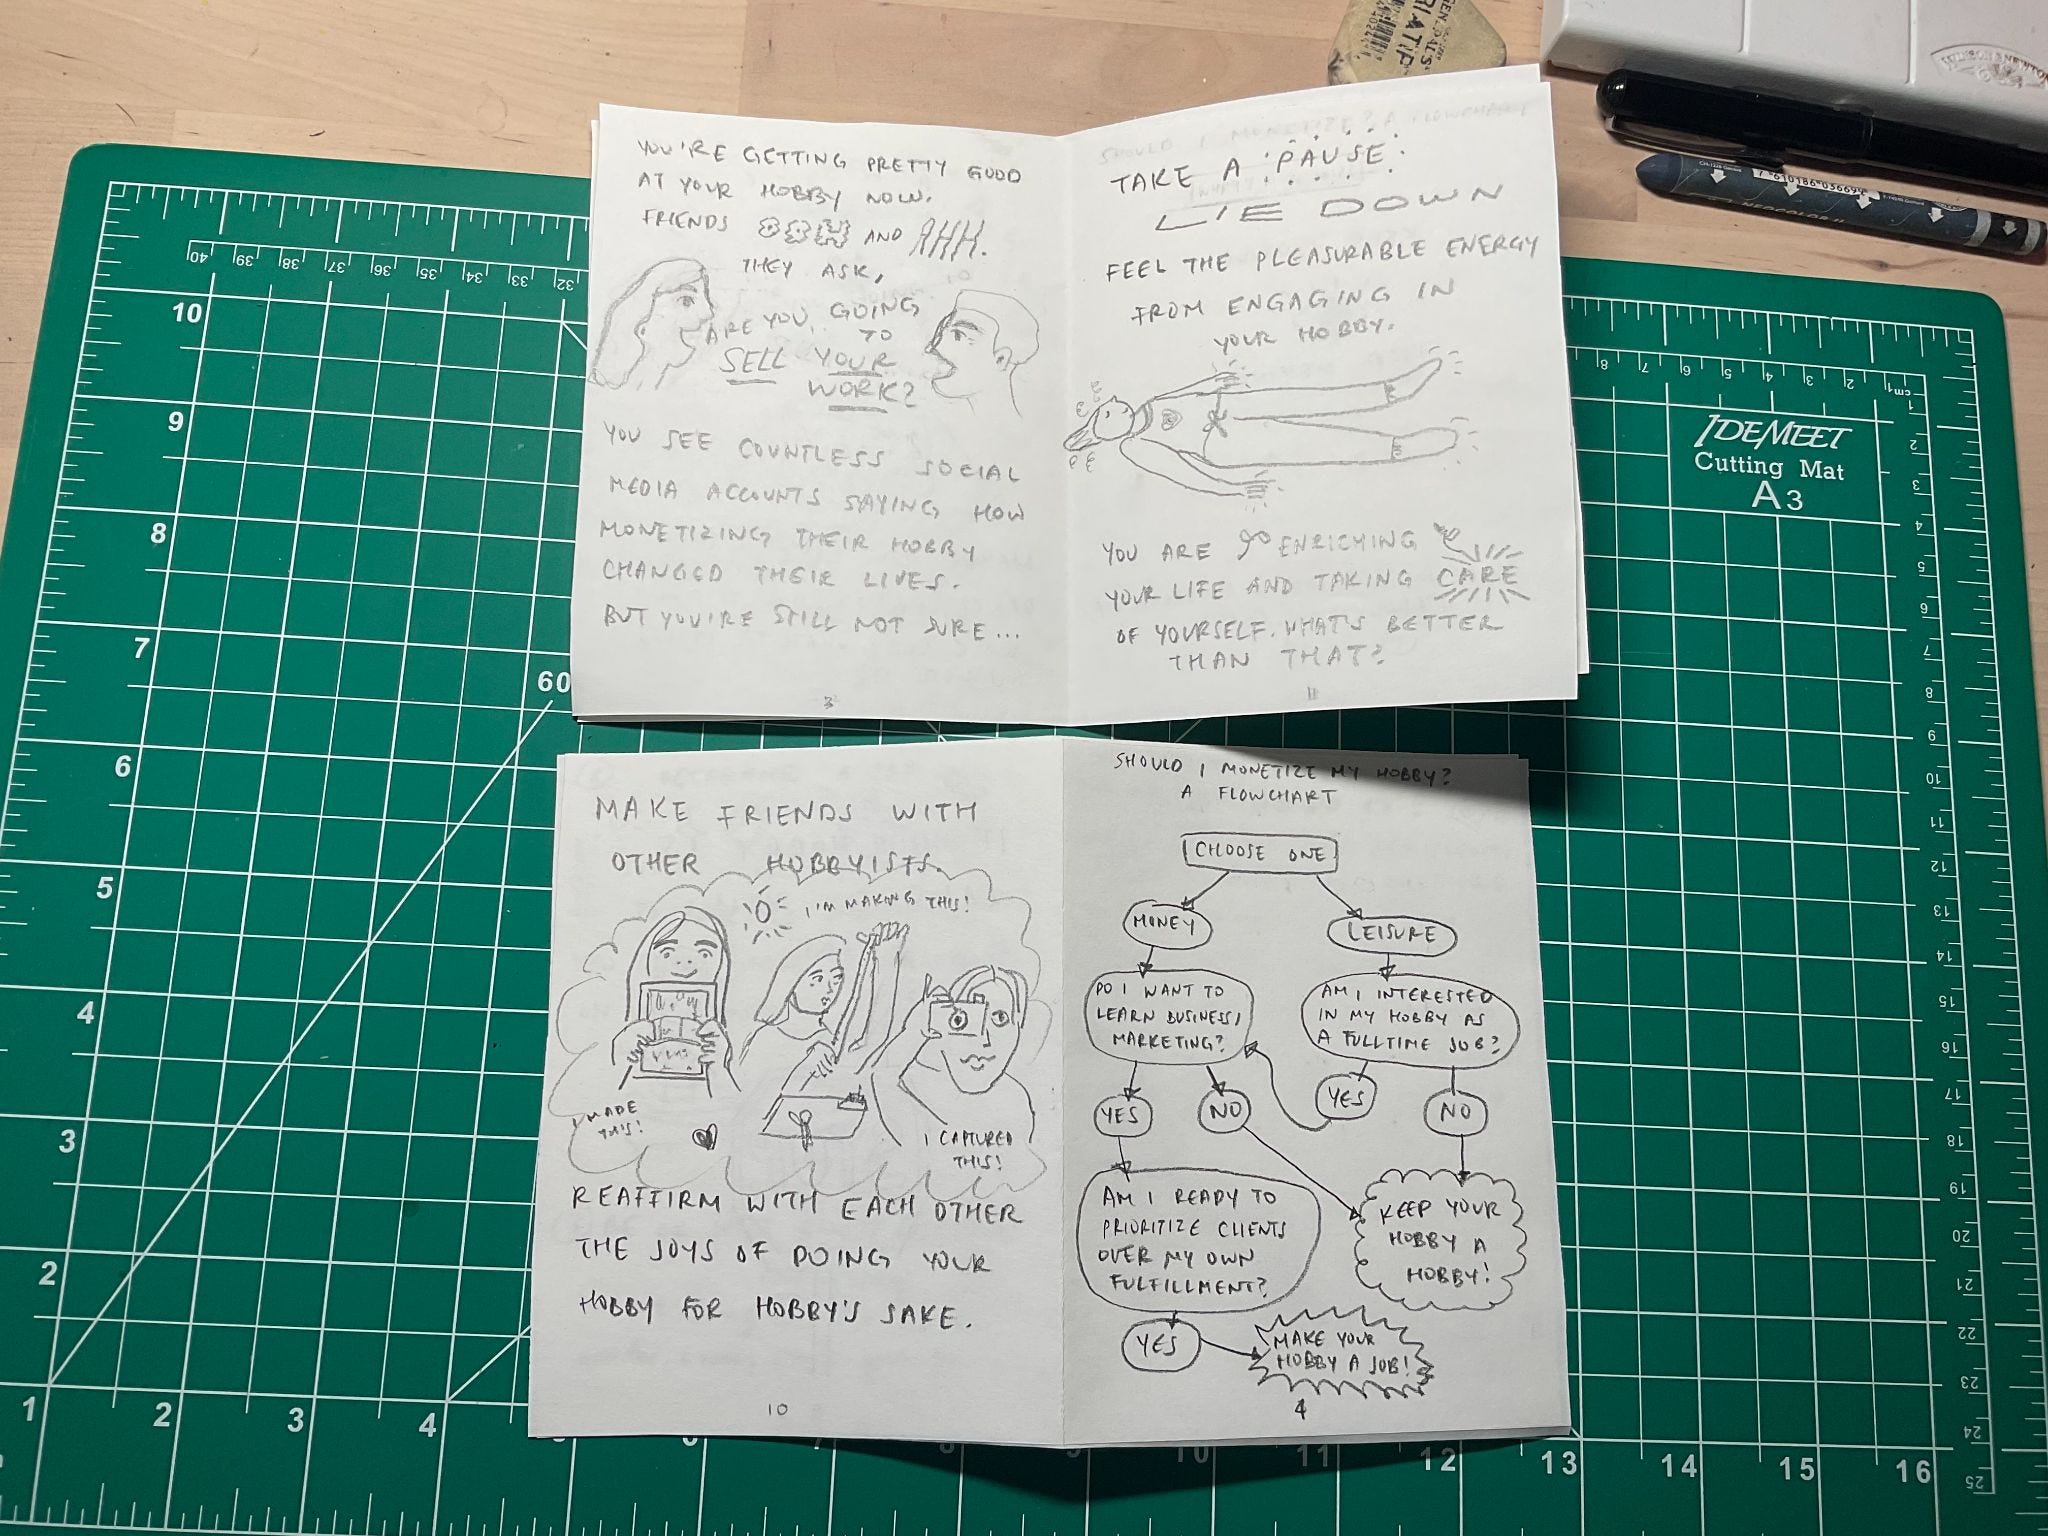 YOU'RE GETTING PRETTY GOOD
AT YOUR HOBBY NOW.
FRIENDS OOH AND AHH.
THEY ASK,
ARE YOU GOING
TO
SELL YOUR
WORK?
YOU SEE COUNTLESS SOCIAL
MEDIA ACCOUNTS SAYING HOW
MONETIZING THEIR HOBBY
CHANGED THEIR LIVES.
BUT YOU'RE STILL NOT SURE...
3
TAKE A PAUSE
LIE DOWN
FEEL THE PLEASURABLE ENERGY
FROM ENGAGING IN
YOUR HOBBY.
YOU ARE ENRICHING
YOUR LIFE AND TAKING CARE
OF YOURSELF. WHAT'S BETTER
THAN THAT?
11
MAKE FRIENDS WITH
OTHER HOBBYISTS.
I'M MAKING THIS!
I MADE
THIS!
I CAPTURED
THIS!
REAFFIRM WITH EACH OTHER
THE JOYS OF DOING YOUR
HOBBY FOR HOBBY'S SAKE.
10
SHOULD I MONETIZE MY HOBBY?
A FLOWCHART
CHOOSE ONE
MONEY
LEISURE
DO I WANT TO
LEARN BUSINESS/
MARKETING?
AM I INTERESTED
IN MY HOBBY AS
A FULLTIME JOB?
YES
NO
YES
NO
AM I READY TO
PRIORITIZE CLIENTS
OVER MY OWN
FULFILLMENT?
KEEP YOUR
HOBBY A
HOBBY!
YES
MAKE YOUR
HOBBY A JOB!
4
IDEMEET
Cutting Mat
A3
WINSOR & NEWTON
NEOCOLOR II
40 39 38 37 36 35 34 33 32
10
9
8
7
6
5
4
3
2
1
60
2 3 4 10 11 12 13 14 15 16
8 7 6 5 4 3 2 cm1
1
2
3
4
5
6
7
8
9
10
11
12
13
14
15
16
17
18
19
20
21
22
23
24
25